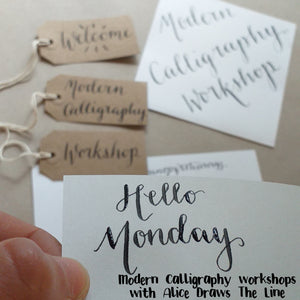 Welcome
Modern
Calligraphy
Workshop
Modern
Calligraphy
Workshop
Hello
Monday
Modern Calligraphy workshops
with Alice Draws The Line